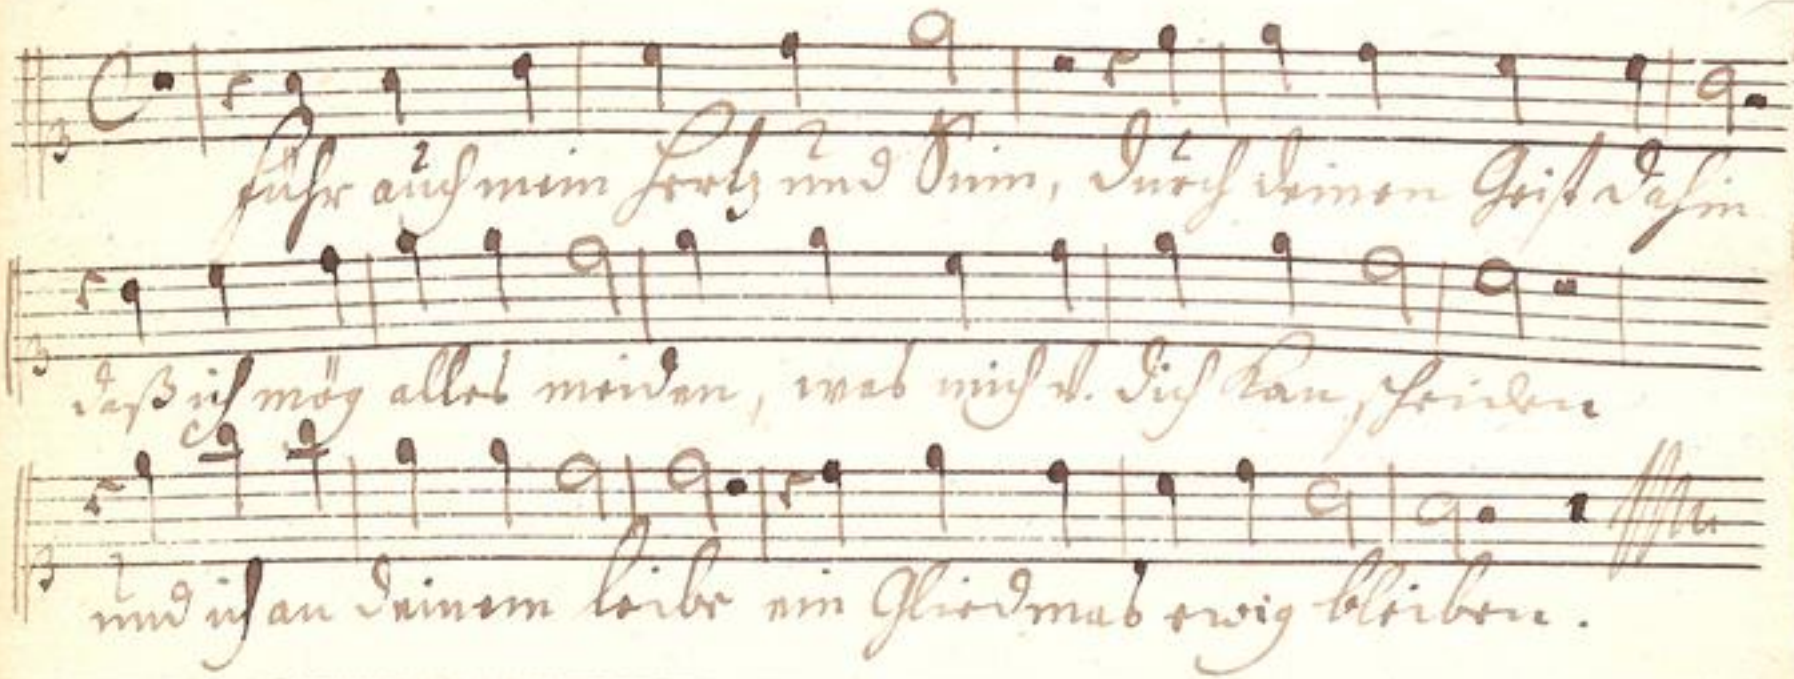 führ auch mein Hertz und Sinn, durch deinen Geist dahin
daß ich mög alles meiden, was mich v. dich kan scheiden
und ich an deinem leibe ein Gliedmas ewig bleiben.